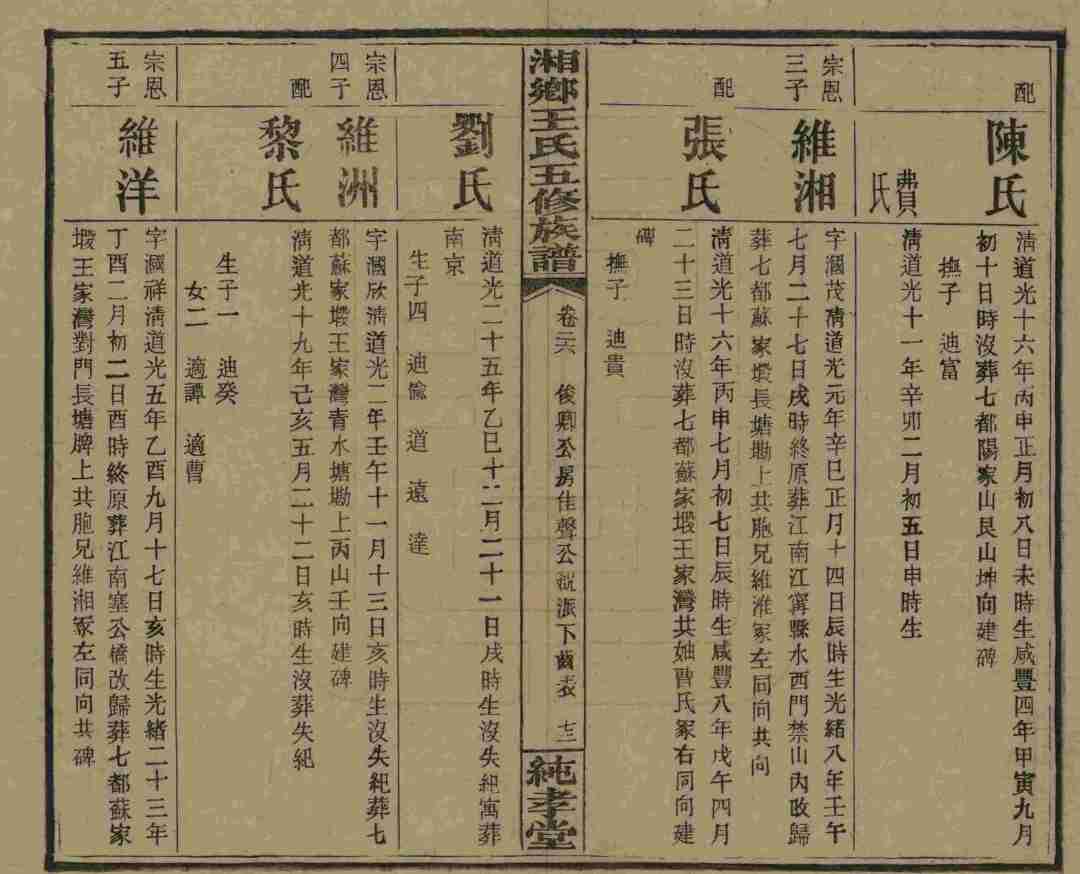 配
陳氏
清道光十六年丙申正月初八日未時生咸豐四年甲寅九月
初十日時沒葬七都陽家山艮山坤向建碑
撫子 迪富
費氏
清道光十一年辛卯二月初五日申時生
宗恩
三子
維湘
字國茂清道光元年辛巳正月十四日辰時生光緒八年壬午
七月二十七日戌時終原葬江南江寧縣水西門禁山內改歸
葬七都蘇家塅長塘坳上共胞兄維淮冢左同向共向
配
張氏
清道光十六年丙申七月初七日辰時生咸豐八年戊午四月
二十三日時沒葬七都蘇家塅王家灣共妯曹氏冢右同向建
碑
撫子 迪貴
湘鄉王氏五修族譜
卷三六
俊卿公房佳聲公派下齒表
純孝堂
劉氏
清道光二十五年乙巳十二月二十一日戌時生沒失紀寓葬
南京
生子四 迪倫 道 遠 達
宗恩
四子
維洲
字國欣清道光二年壬午十一月十三日亥時生沒失紀葬七
都蘇家塅王家灣青水塘坳上丙山壬向建碑
配
黎氏
清道光十九年己亥五月二十二日亥時生沒葬失紀
生子一 迪癸
女二 適譚 適曹
宗恩
五子
維洋
字國祥清道光五年乙酉九月十七日亥時生光緒二十三年
丁酉二月初二日酉時終原葬江南塞公橋改歸葬七都蘇家
塅王家灣對門長塘牌上共胞兄維湘冢左同向共碑